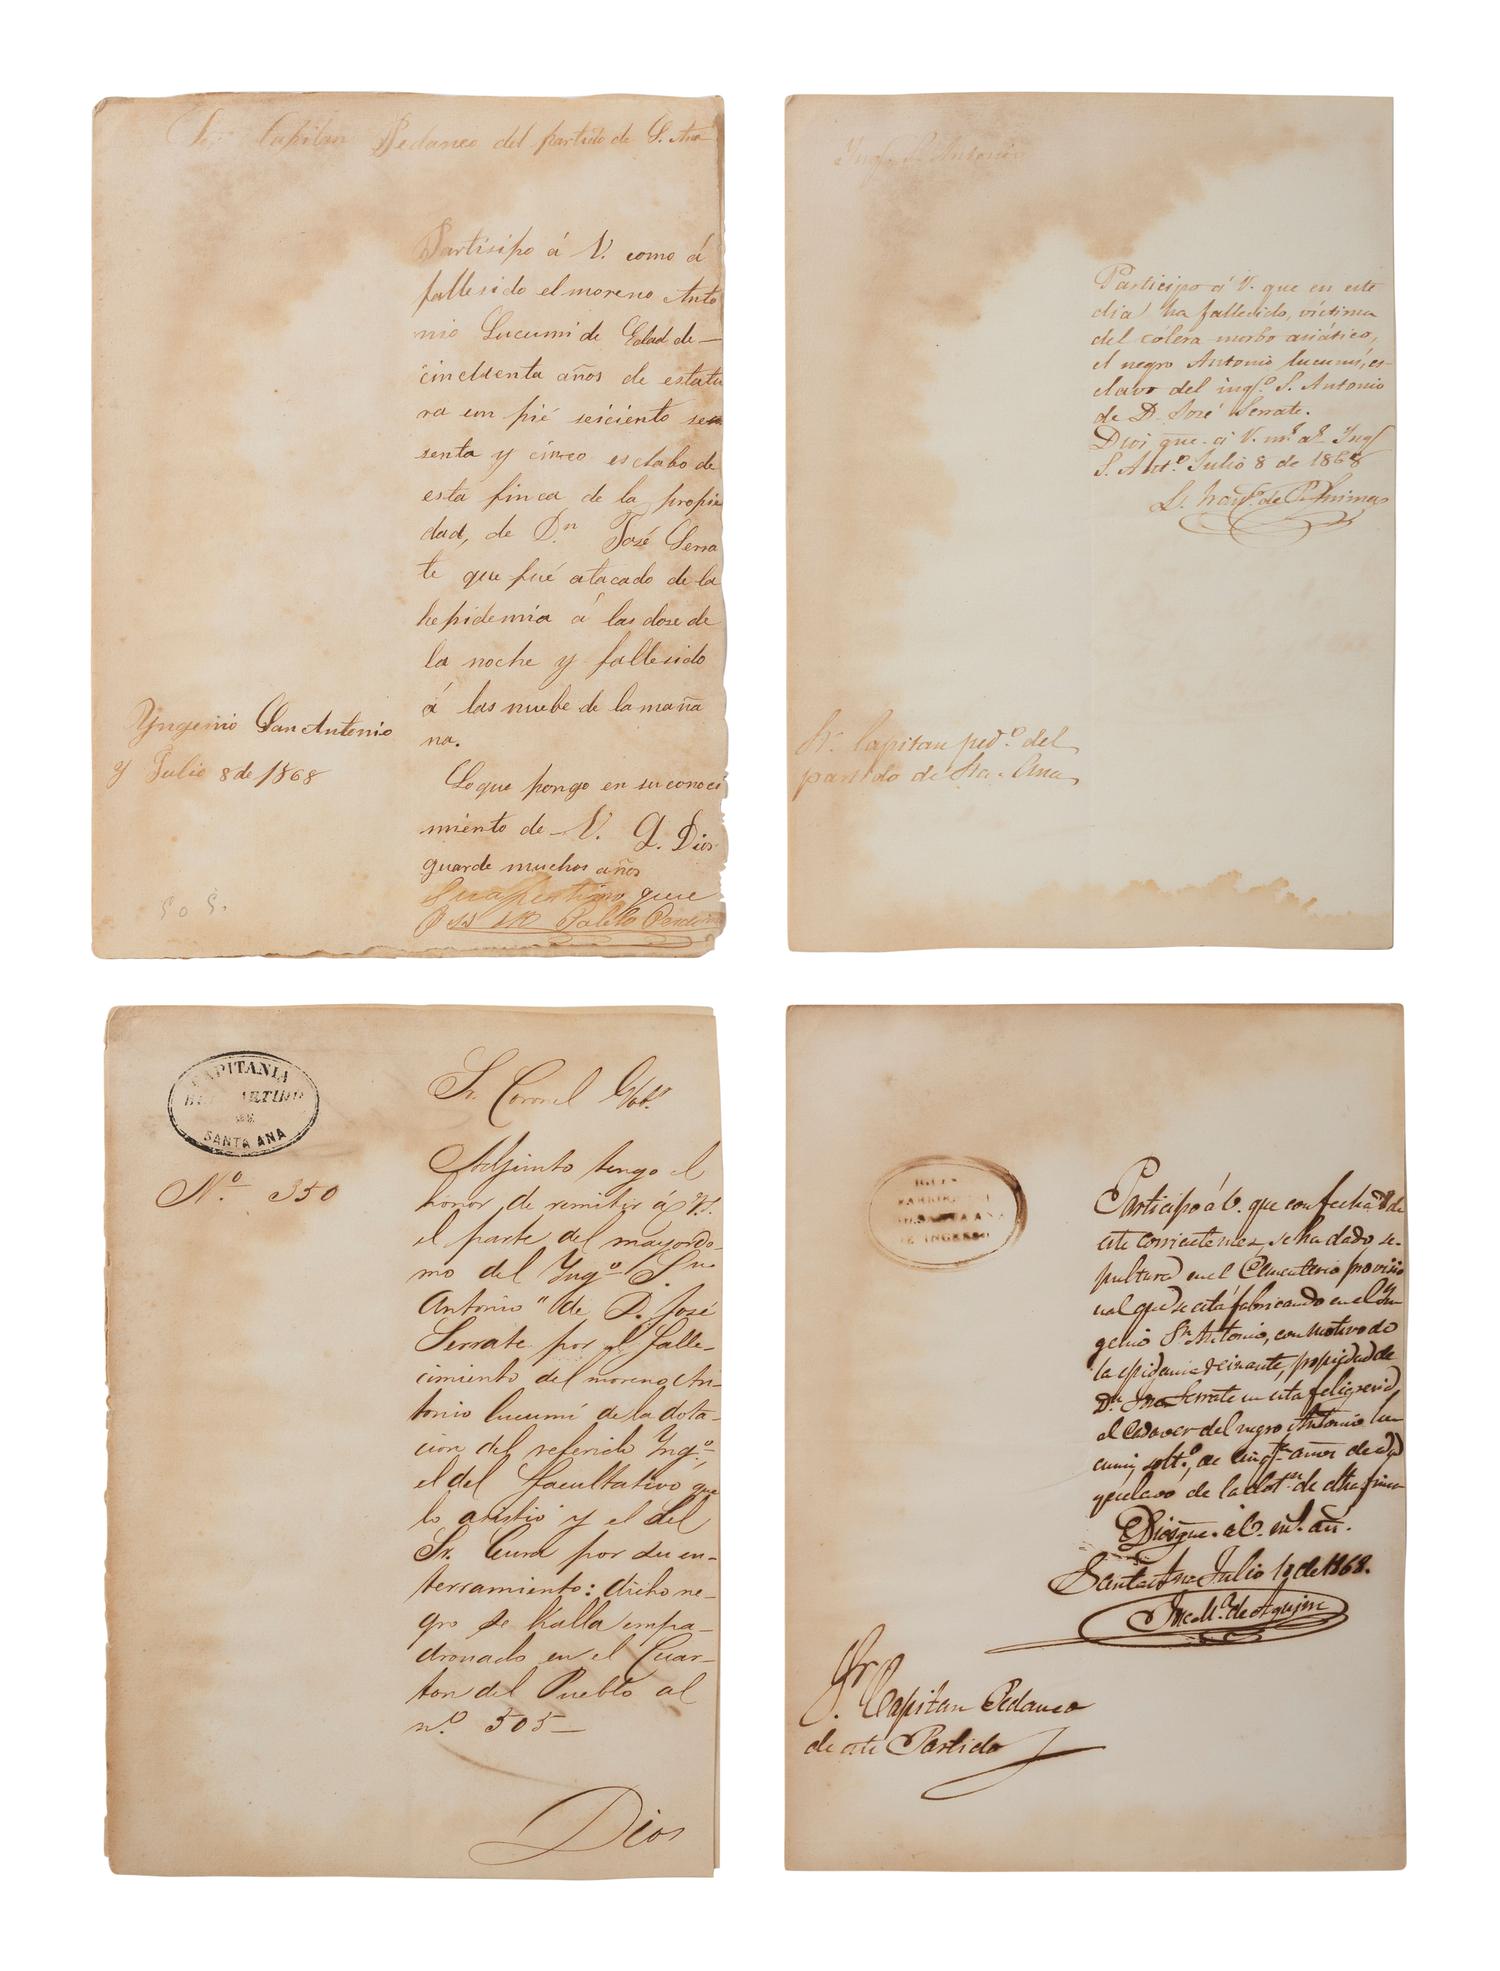 Sor Capitan Pedaneo del partido de S. Ana
Partisipo á V. como á
fallesido el moreno Anto
nio Lucumi de Edad de —
cincuenta años de estatu
ra un pié seiciento se
senta y cinco esclabo de
esta finca de la propie
dad, de Dn José Serra
te que fué atacado de la
hepidemia á las dose de
la noche y fallesido
á las nuebe de la maña
na.
Yngenio San Antonio
y Julio 8 de 1868
Lo que pongo en su conoci
miento de V. Q. Dios
guarde muchos años
505.
Pablo
Yngo S. Antonio
Participo á V. que en este
dia ha fallecido, víctima
del cólera morbo asiático,
el negro Antonio lucumí, es-
clavo del ingo S. Antonio
de D. José Serrate.
Dios gue. á V. ms. as. Ing
S. Anto Julio 8 de 1868
Sr. Capitan pedo del
partido de Sta. Ana
CAPITANIA
DEL PARTIDO
DE
SANTA ANA
No 350
Sr. Coronel Gobr.
Adjunto tengo el
honor de remitir á V.S.
el parte del mayordo-
mo del Yngo "Sn
Antonio" de D. José
Serrate por el falle-
cimiento del moreno An-
tonio lucumí de la dota-
cion del referido Yngo,
el del facultativo que
lo asistió y el del
Sr. Cura por su en-
terramiento: dicho ne-
gro se halla empa-
dronado en el Cuar-
ton del Pueblo al
no. 505 —
Dios
SANTA ANA
DE INGRESO
Participo á V. que con fecha 8 de
este corriente mes, se ha dado se-
pultura en el Cementerio provisio
nal que se está fabricando en el Yn
genio Sn Antonio, con motivo de
la epidemia reinante, propiedad de
Dn José Serrate en esta feligresia
el Cadaver del negro Antonio lu
cumi, solto, de cinqta años de edad
y esclavo de la doton de dha finca
Dios gue. á V. ms. añ.
Santa Ana Julio 10 de 1868.
Sr. Capitan Pedaneo
de este Partido